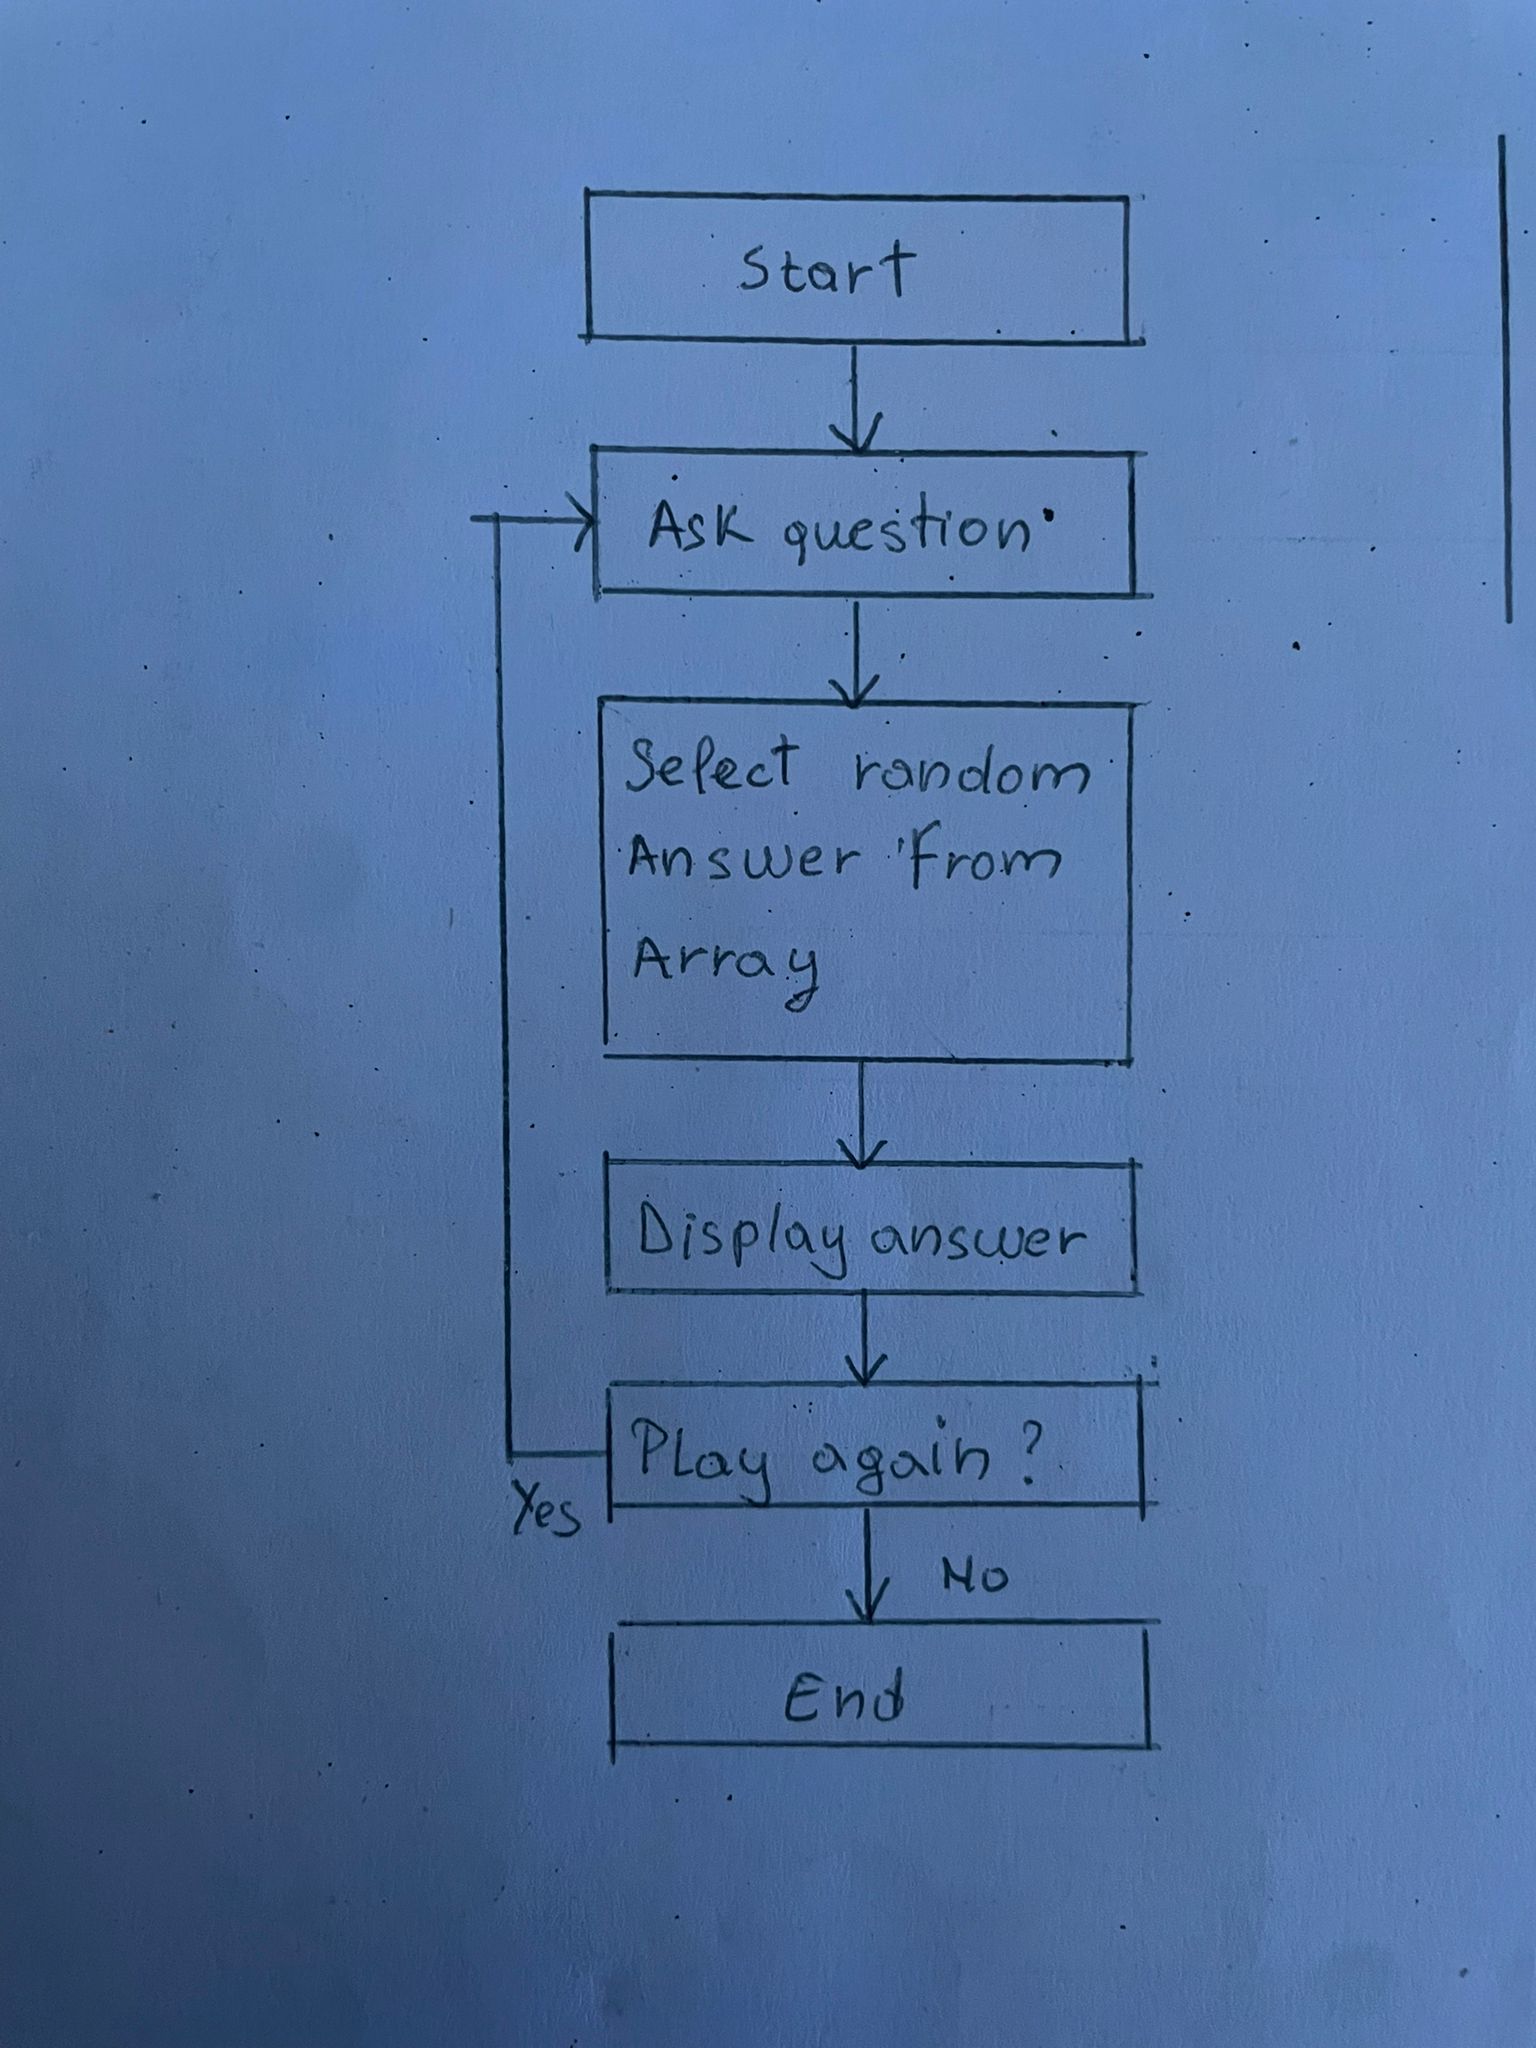 Start
Ask question
Select random
Answer From
Array
Display answer
Play again ?
Yes
No
End